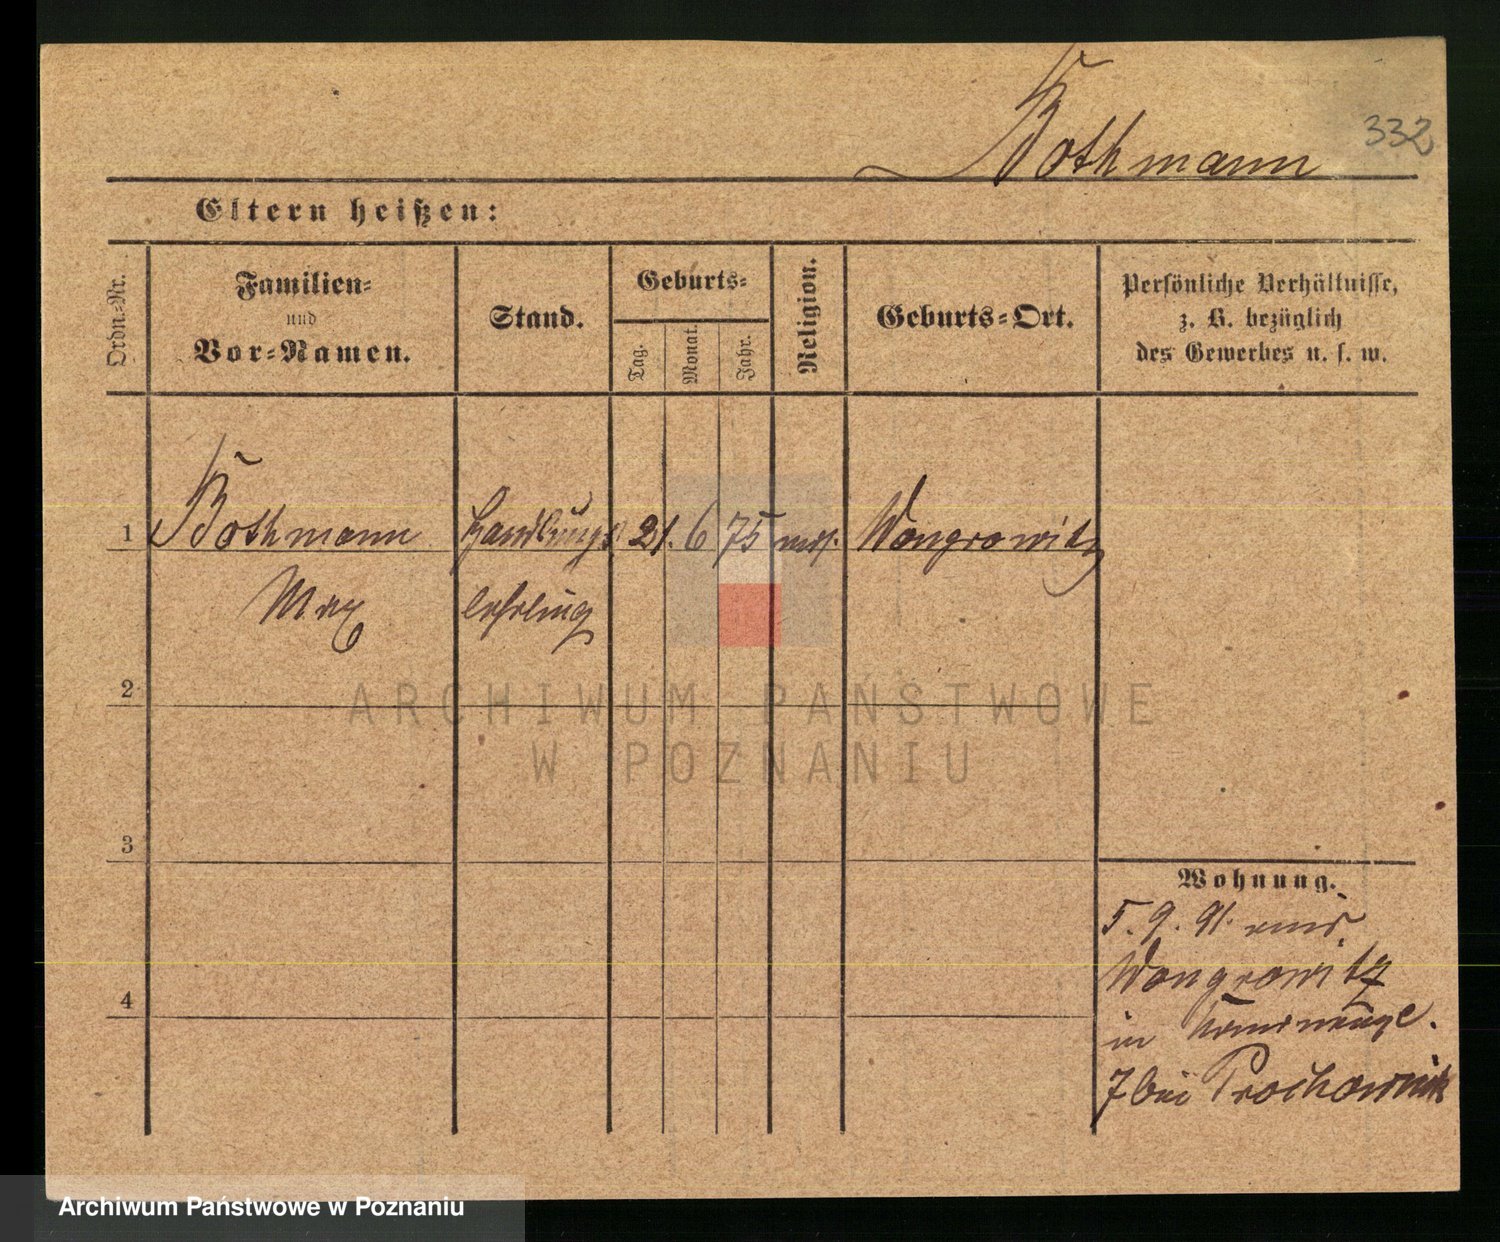 Bothmann
332
Eltern heißen:
Ordn.-Nr.
Familien-
und
Vor-Namen.
Stand.
Geburts-
Tag.
Monat.
Jahr.
Religion.
Geburts-Ort.
Persönliche Verhältnisse,
z. B. bezüglich
des Gewerbes u. s. w.
1 Bothmann Handlungs 21. 6 75 mos. Wongrowitz
Max lehrling
2
ARCHIWUM PAŃSTWOWE
W POZNANIU
3
Wohnung.
5. 9. 91. aus
Wongrowitz
4
in
7 bei Prochownik
Archiwum Państwowe w Poznaniu